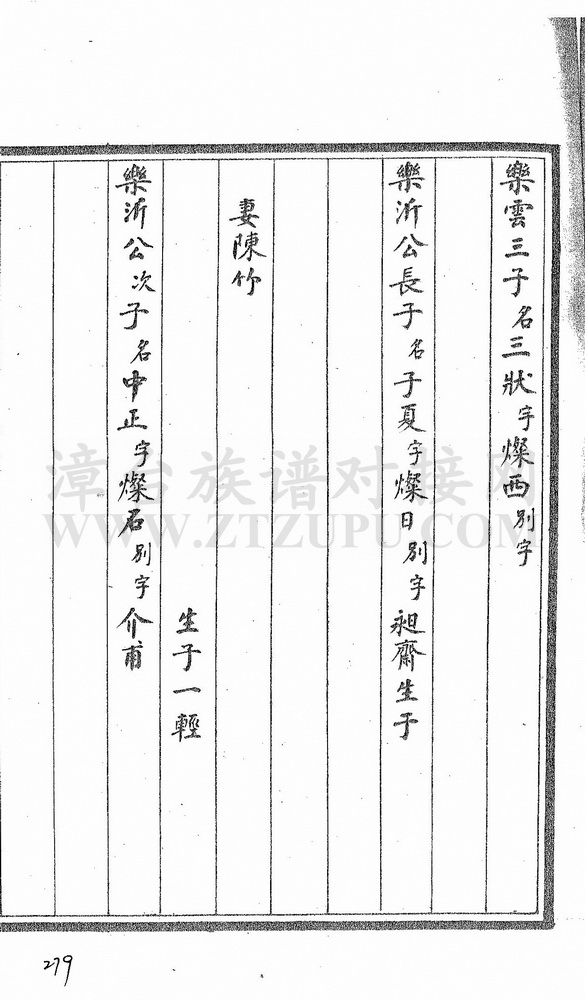 樂雲三子名三狀字燦西別字
樂沂公長子名子夏字燦日別字昶齋生于
妻陳竹
生子一輕
樂沂公次子名中正字燦石別字介甫
279
漳台族谱对接网
WWW.ZTZUPU.COM